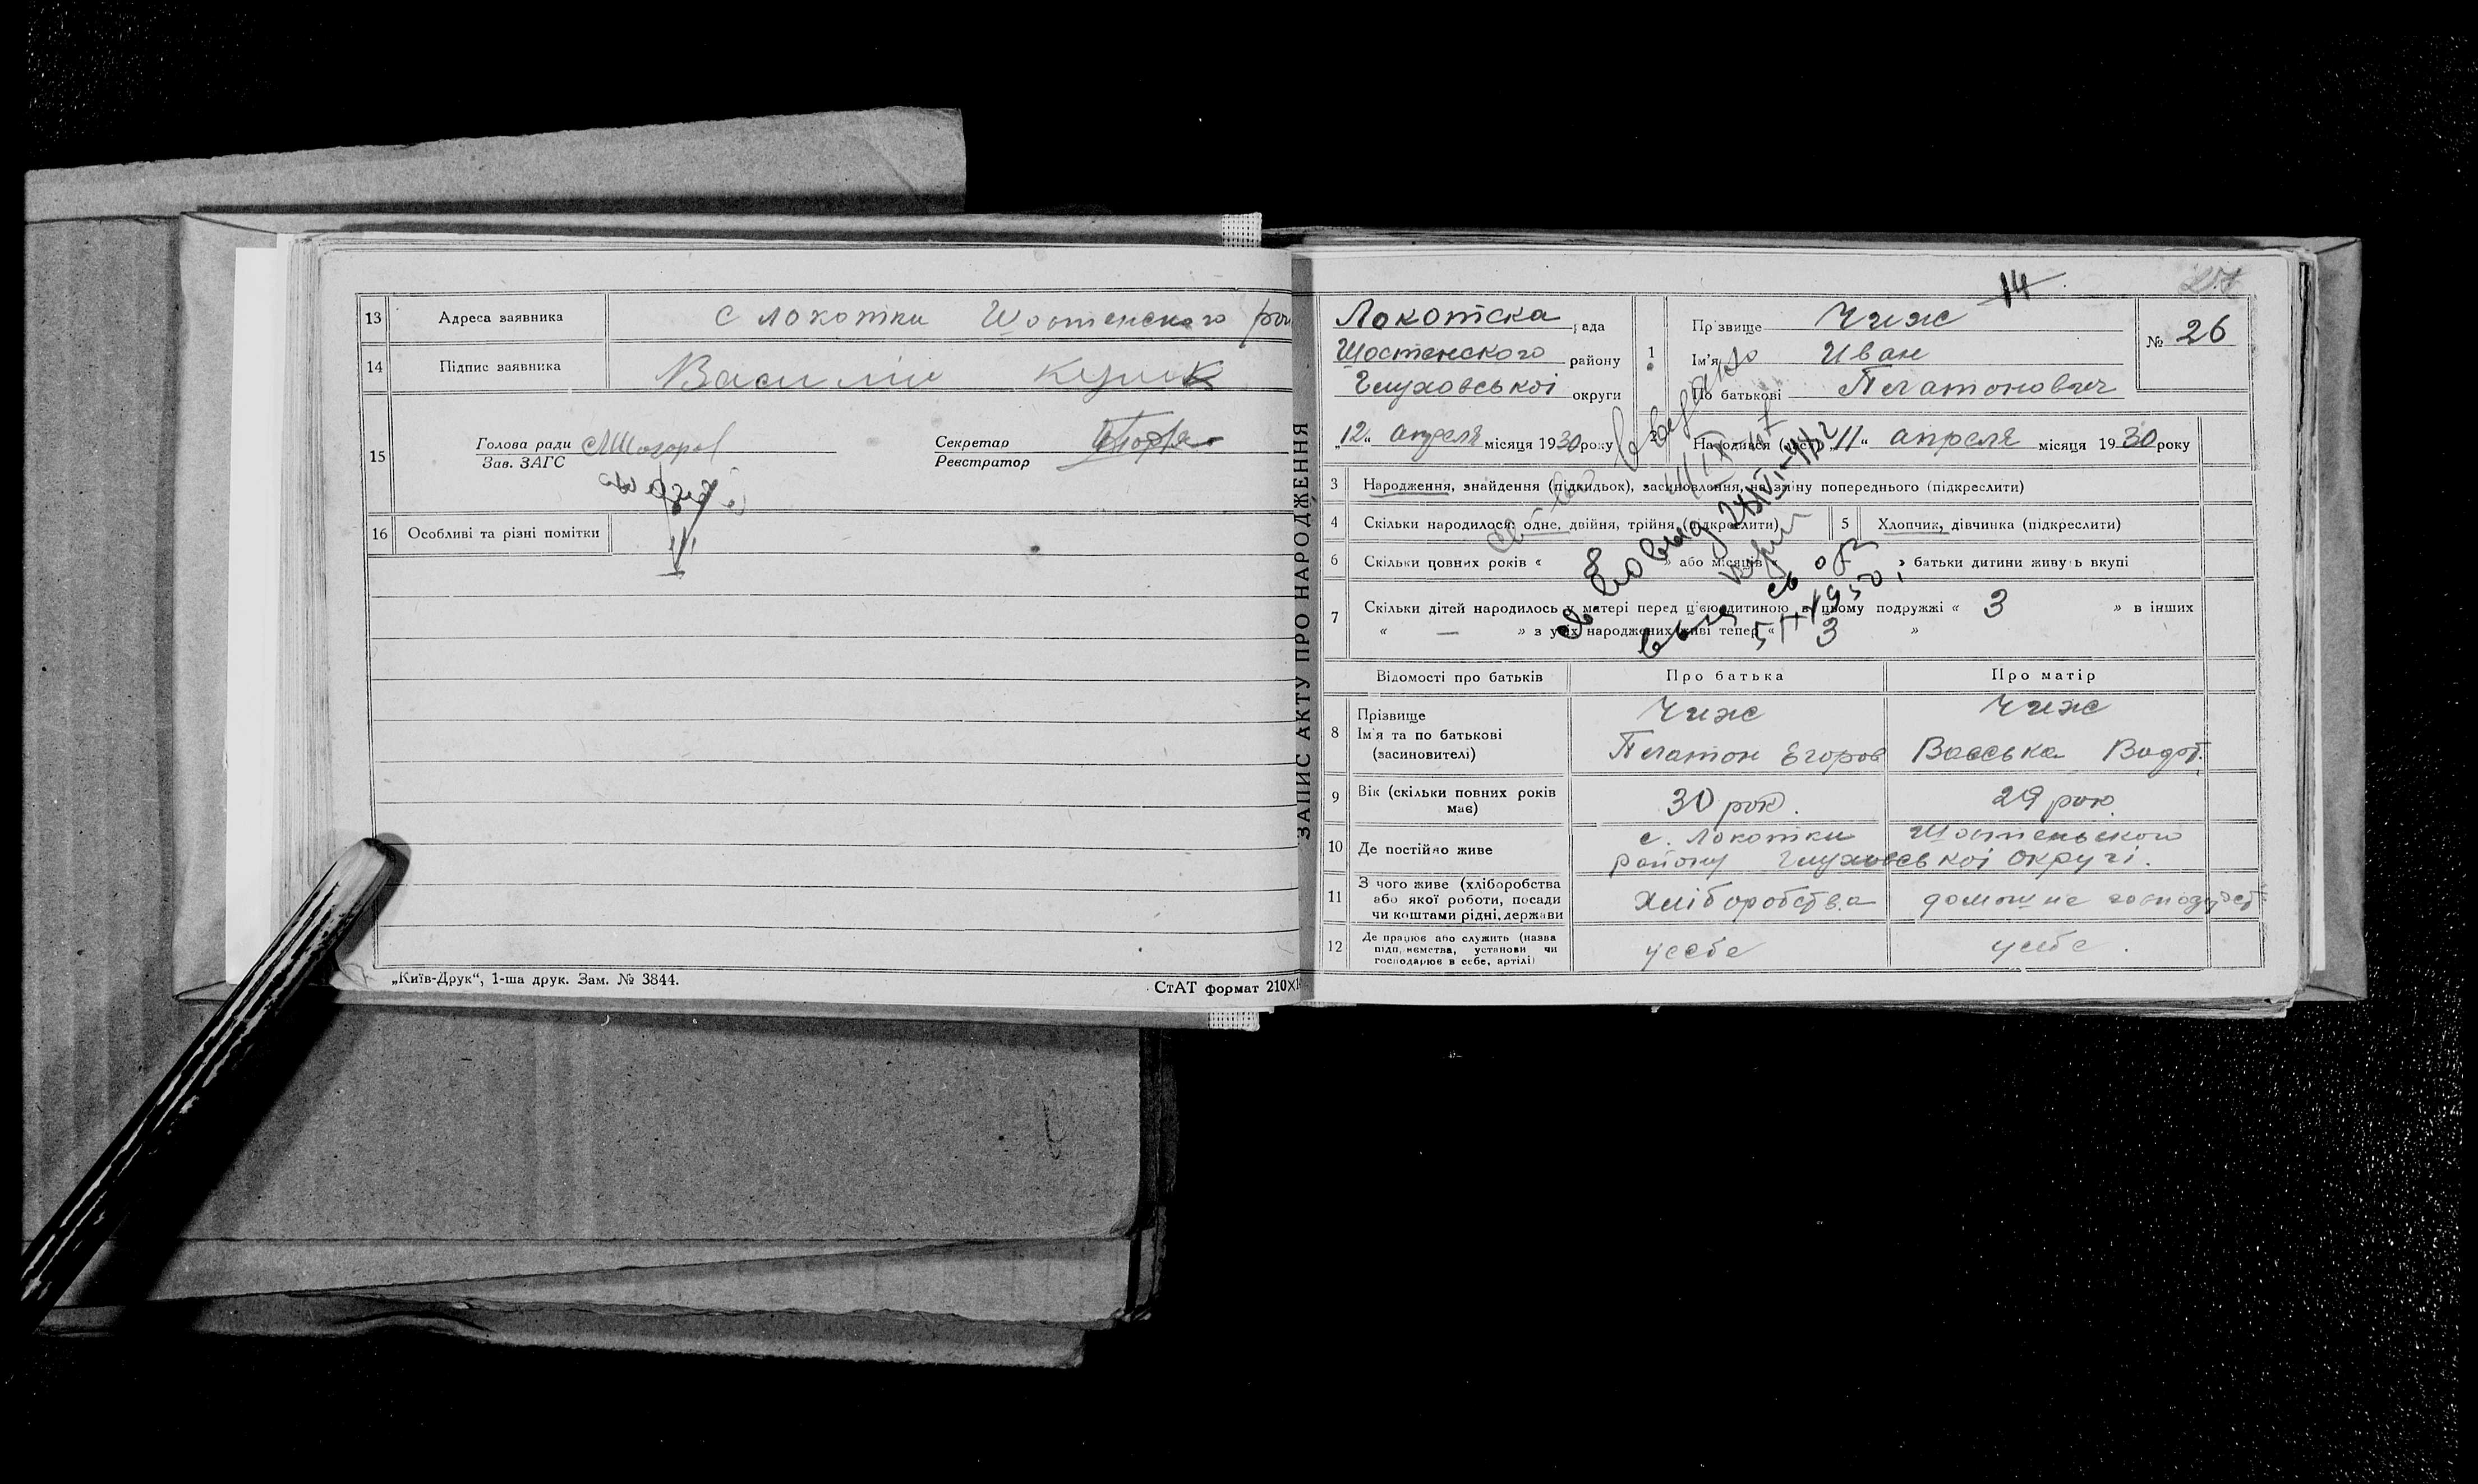 13 Адреса заявника с локотки Шостенского
14 Підпис заявника Василий
15 Голова ради
Зав. ЗАГС
Секретар
Реєстратор
16 Особливі та різні помітки
„Київ-Друк“, 1-ша друк. Зам. № 3844.
СтАТ формат 210×1
ЗАПИС АКТУ ПРО НАРОДЖЕННЯ
14
27
Локотска рада
Шостенского району
Глуховської округи
1
Прізвище Чиж
Ім'я Иван
По батькові Платонович
№ 26
„12“ апреля місяця 1930 року
2 Народився (лась) „11“ апреля місяця 1930 року
3 Народження, знайдення (підкидьок), засиновлення, на зміну попереднього (підкреслити)
4 Скільки народилося: одне, двійня, трійня (підкреслити)
5 Хлопчик, дівчинка (підкреслити)
6 Скільки повних років « 8 » або місяців » батьки дитини живуть вкупі
7 Скільки дітей народилось у матері перед цією дитиною в цьому подружжі « 3 » в інших
« — » з усіх народжених живі тепер « 3 »
Відомості про батьків Про батька Про матір
8 Прізвище Чиж Чиж
Ім'я та по батькові
(засиновителі) Платон Егоров Васська
9 Вік (скільки повних років
має) 30 рок. 29 рок
10 Де постійно живе с. Локотки Шостеньского
району Глуховської округі.
11 З чого живе (хліборобства
або якої роботи, посади
чи коштами рідні, держави Хліборобства домашнє
12 Де працює або служить (назва
підприємства, установи чи
господарює в себе, артілі) усебе усебе